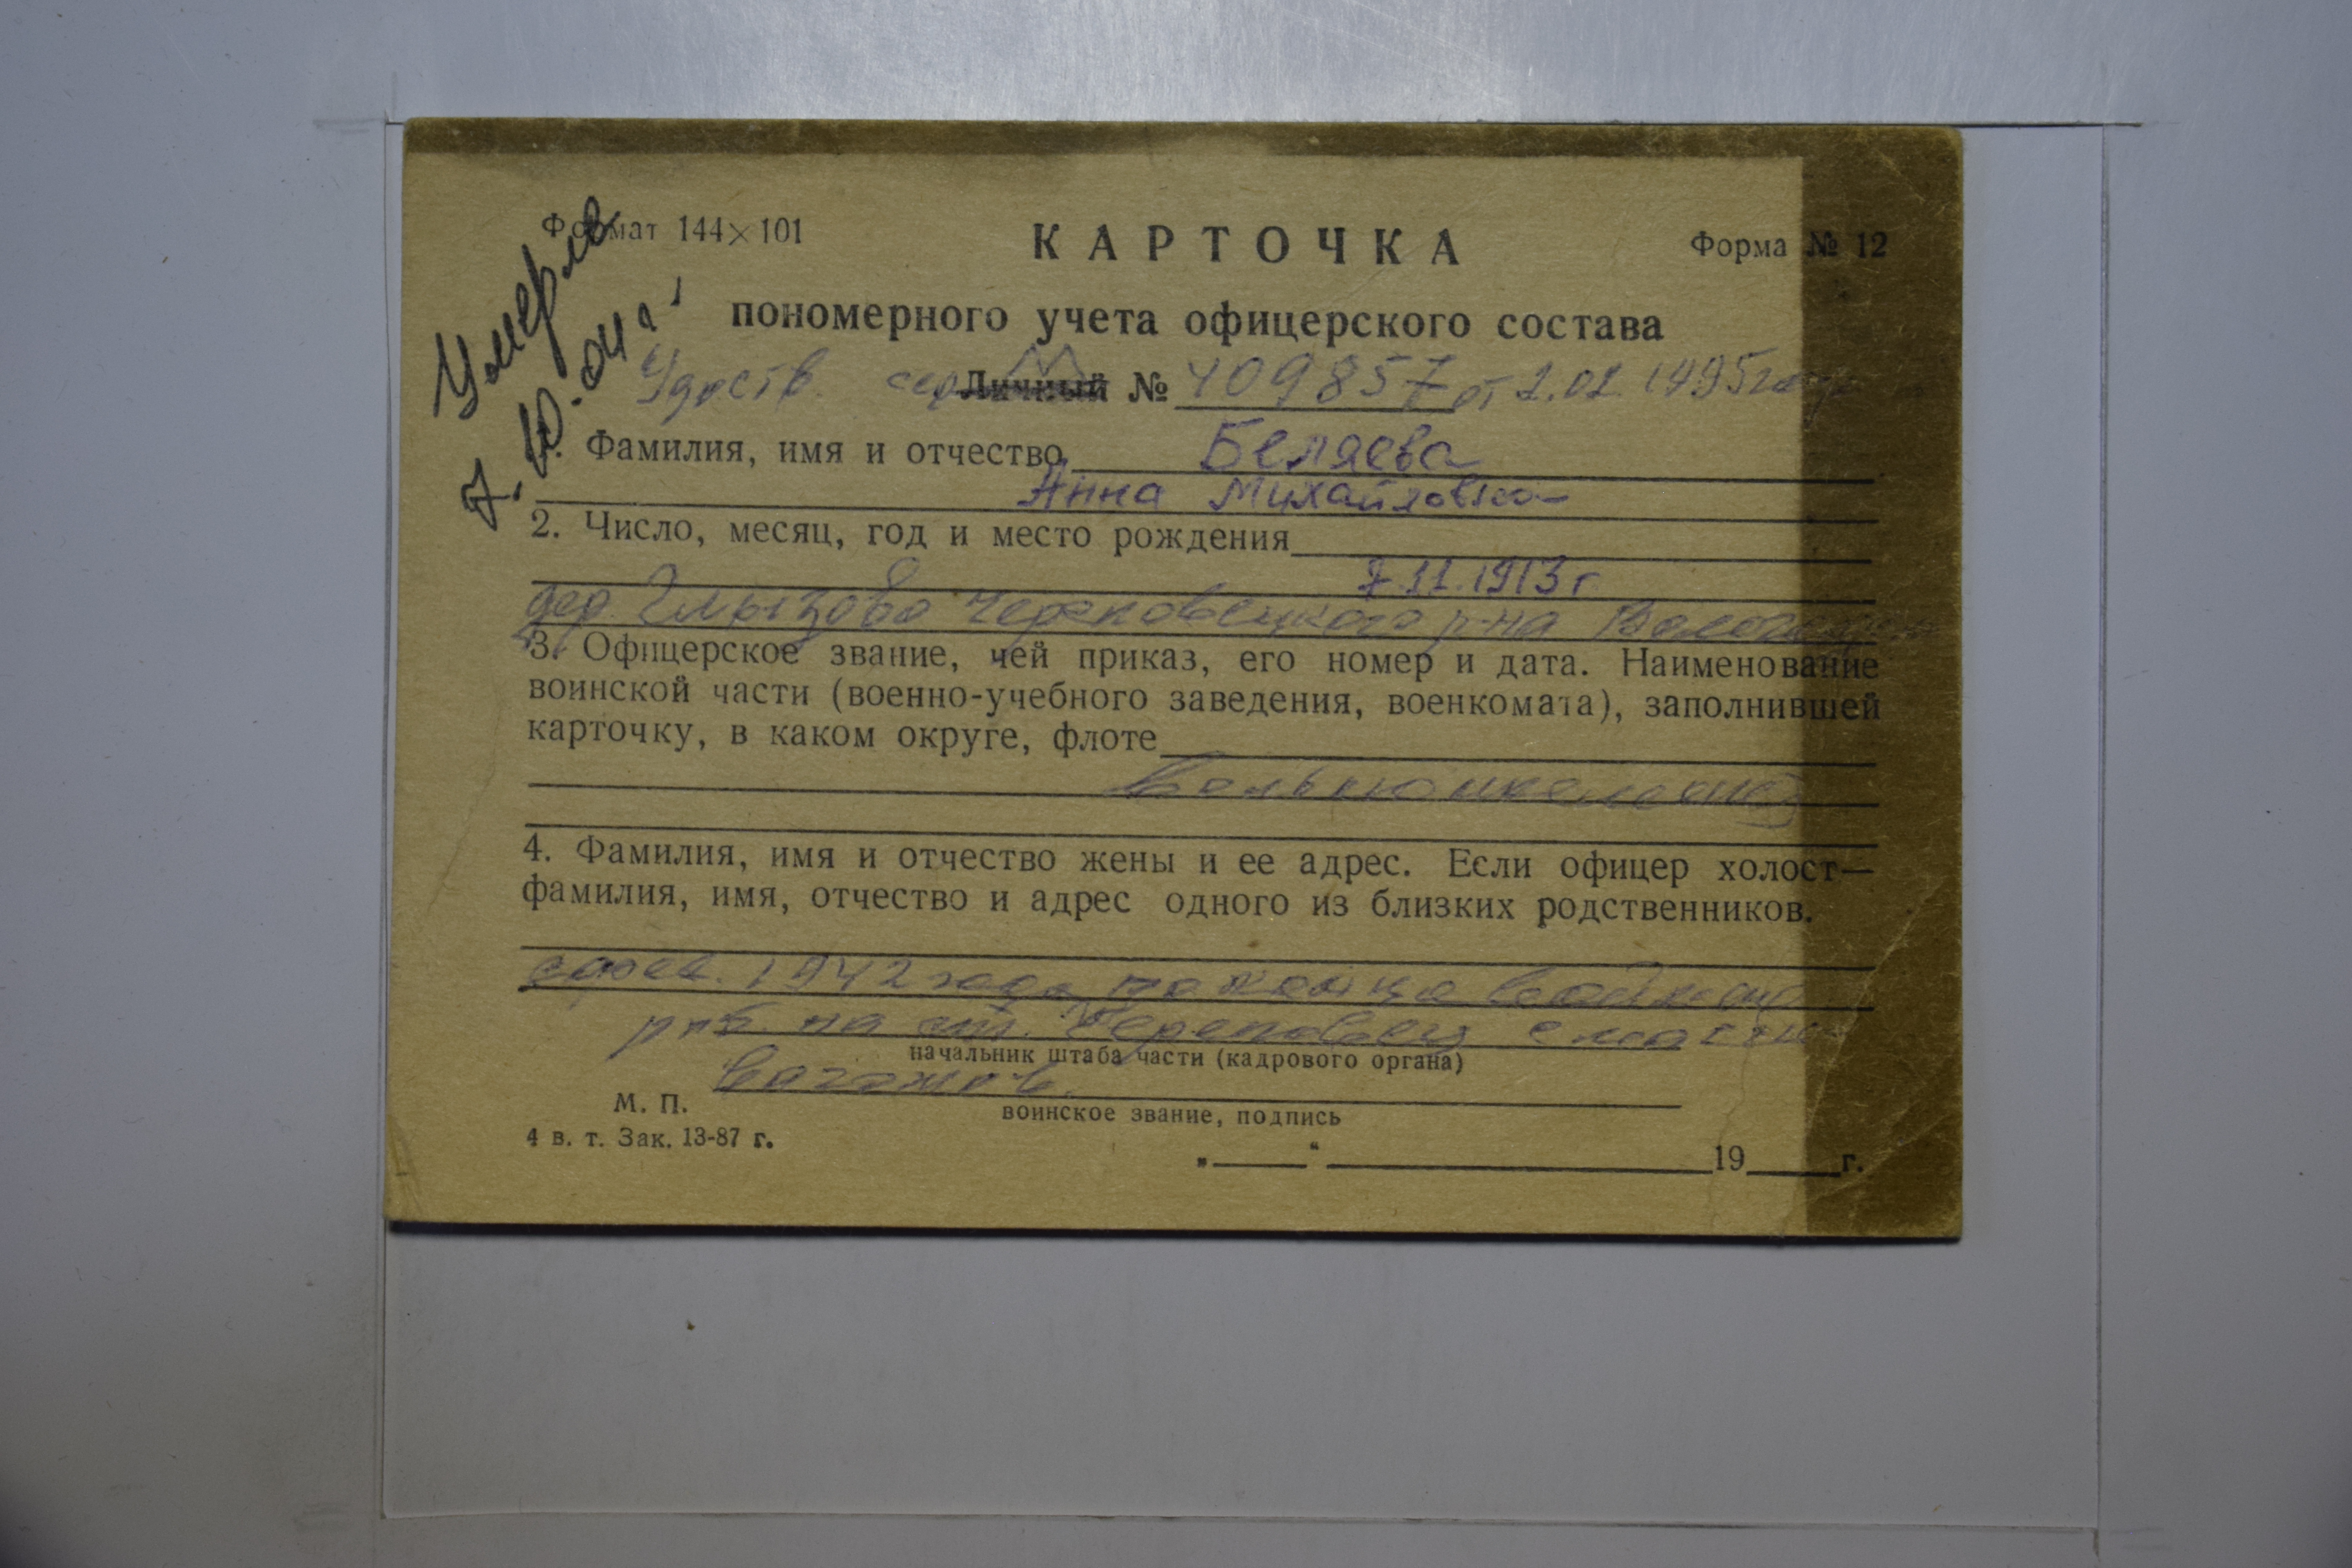 Умерла
7.10.01 г.
Формат 144×101
КАРТОЧКА
Форма № 12
пономерного учета офицерского состава
Удост. сер. Личный № 409857 от 2.02.1995 года
1. Фамилия, имя и отчество Беляева
Анна Михайловна
2. Число, месяц, год и место рождения
7.11.1913 г.
дер. Глызово Череповецкого р-на
3. Офицерское звание, чей приказ, его номер и дата. Наименование
воинской части (военно-учебного заведения, военкомата), заполнившей
карточку, в каком округе, флоте
Вольнонаемная
4. Фамилия, имя и отчество жены и ее адрес. Если офицер холост—
фамилия, имя, отчество и адрес одного из близких родственников.
с фев. 1942 года по конец войны
раб. на ст. Череповец
начальник штаба части (кадрового органа)
вагонов.
М. П.
воинское звание, подпись
4 в. т. Зак. 13-87 г.
„ “ 19 г.